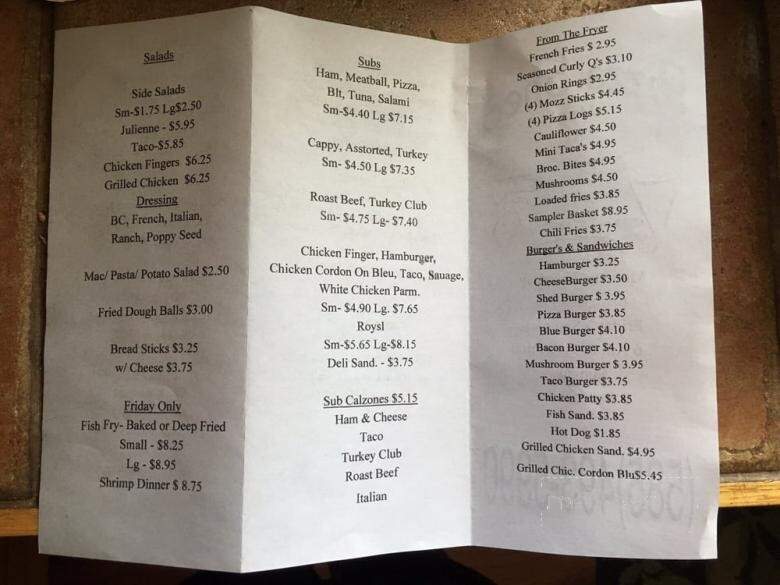 Salads
Side Salads
Sm-$1.75 Lg$2.50
Julienne - $5.95
Taco-$5.85
Chicken Fingers $6.25
Grilled Chicken $6.25
Dressing
BC, French, Italian,
Ranch, Poppy Seed
Mac/ Pasta/ Potato Salad $2.50
Fried Dough Balls $3.00
Bread Sticks $3.25
w/ Cheese $3.75
Friday Only
Fish Fry- Baked or Deep Fried
Small - $8.25
Lg - $8.95
Shrimp Dinner $ 8.75
Subs
Ham, Meatball, Pizza,
Blt, Tuna, Salami
Sm-$4.40 Lg $7.15
Cappy, Asstorted, Turkey
Sm- $4.50 Lg $7.35
Roast Beef, Turkey Club
Sm- $4.75 Lg- $7.40
Chicken Finger, Hamburger,
Chicken Cordon On Bleu, Taco, Sauage,
White Chicken Parm.
Sm- $4.90 Lg. $7.65
Roysl
Sm-$5.65 Lg-$8.15
Deli Sand. - $3.75
Sub Calzones $5.15
Ham & Cheese
Taco
Turkey Club
Roast Beef
Italian
From The Fryer
French Fries $ 2.95
Seasoned Curly Q's $3.10
Onion Rings $2.95
(4) Mozz Sticks $4.45
(4) Pizza Logs $5.15
Cauliflower $4.50
Mini Taca's $4.95
Broc. Bites $4.95
Mushrooms $4.50
Loaded fries $3.85
Sampler Basket $8.95
Chili Fries $3.75
Burger's & Sandwiches
Hamburger $3.25
CheeseBurger $3.50
Shed Burger $ 3.95
Pizza Burger $3.85
Blue Burger $4.10
Bacon Burger $4.10
Mushroom Burger $ 3.95
Taco Burger $3.75
Chicken Patty $3.85
Fish Sand. $3.85
Hot Dog $1.85
Grilled Chicken Sand. $4.95
Grilled Chic. Cordon Blu$5.45